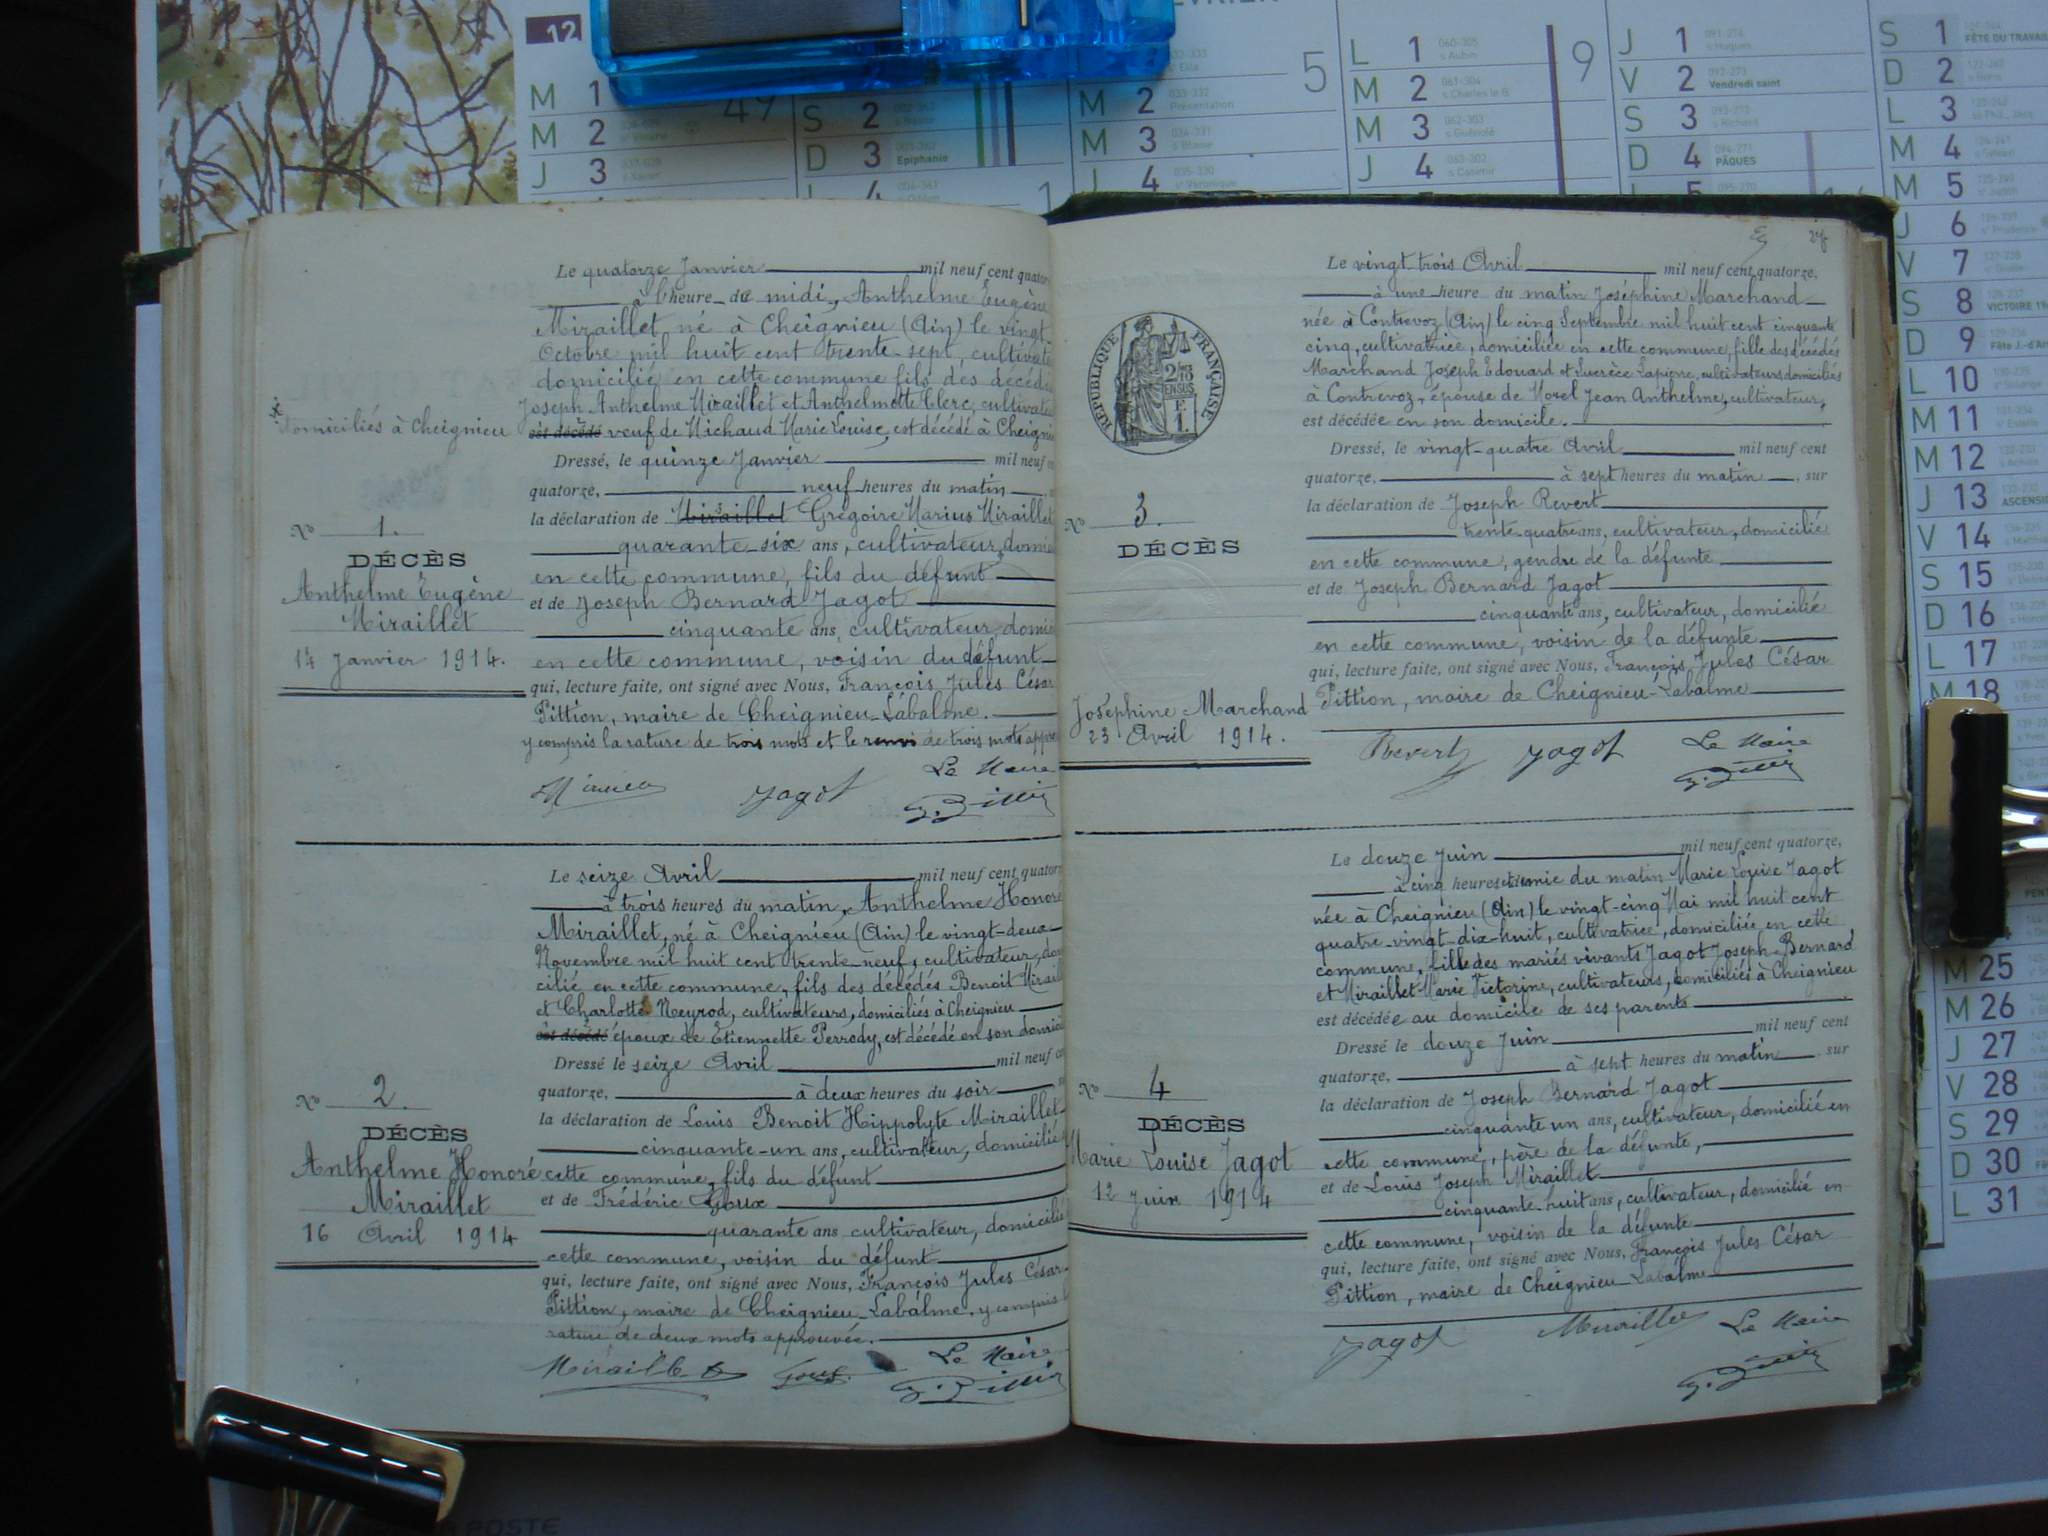 12
M 1
M 2
J 3
49
S 2
D 3 Epiphanie
4
1
VRIER
5
M 2 033-332 Présentation
M 3 034-331 s Blaise
J 4 035-330 se Véronique
L 1 060-305 s Aubin
M 2 061-304 s Charles le B.
M 3 062-303 s Guénolé
J 4 063-302 s Casimir
9
J 1 091-274 s Hugues
V 2 Vendredi saint
S 3 s Richard
D 4 094-271 PÂQUES
5 095-270
S 1 FÊTE DU TRAVAIL
D 2
L 3
M 4
M 5
J 6
V 7
S 8 VICTOIRE 19
D 9 Fête J.-d'Ar
L 10
M 11
M 12
J 13 ASCENSI
V 14
S 15
D 16
L 17
M 18
M 25
M 26
J 27
V 28
S 29
D 30
L 31
Le quatorze Janvier mil neuf cent quator
à l'heure de midi, Anthelme Eugène
Miraillet né à Cheignieu (Ain) le vingt
Octobre mil huit cent trente-sept, cultivate
domicilié en cette commune fils des décédé
Joseph Anthelme Miraillet et Anthelmette Clerc, cultivate
domiciliés à Cheignieu
est décédé veuf de Michaud Marie Louise, est décédé à Cheigni
Dressé, le quinze Janvier mil neuf c
quatorze, neuf heures du matin
la déclaration de Miraillet Grégoire Marius Miraillet
quarante-six ans, cultivateur, domi
en cette commune, fils du défunt
et de Joseph Bernard Jagot
cinquante ans, cultivateur, domi
en cette commune, voisin du défunt
qui, lecture faite, ont signé avec Nous, François Jules César
Pittion, maire de Cheignieu-Labalme.
y compris la rature de trois mots et le renvoi de trois mots appro
Jagot Le Maire
No 1.
DÉCÈS
Anthelme Eugène
Miraillet
14 Janvier 1914.
Le seize Avril mil neuf cent quator
à trois heures du matin, Anthelme Honoré
Miraillet, né à Cheignieu (Ain) le vingt-deux
Novembre mil huit cent trente-neuf, cultivateur, dom
cilié en cette commune, fils des décédés Benoit Mirail
et Charlotte Neyrod, cultivateurs, domiciliés à Cheignieu
est décédé époux de Etiennette Perrody, est décédé en son domici
Dressé le seize Avril mil neuf ce
quatorze, à deux heures du soir
la déclaration de Louis Benoit Hippolyte Miraillet
cinquante-un ans, cultivateur, domicilié
cette commune, fils du défunt
et de Frédéric Goux
quarante ans cultivateur, domicilié
cette commune, voisin du défunt
qui, lecture faite, ont signé avec Nous, François Jules César
Pittion, maire de Cheignieu-Labalme. y compris
rature de deux mots approuvée.
Miraillet Goux Le Maire
No 2.
DÉCÈS
Anthelme Honoré
Miraillet
16 Avril 1914
Le vingt-trois Avril mil neuf cent quatorze,
à une heure du matin Joséphine Marchand
née à Contrevoz (Ain) le cinq Septembre mil huit cent cinquante
cinq, cultivatrice, domiciliée en cette commune, fille des décédés
Marchand Joseph Edouard et Lucrèce Lapierre, cultivateurs domiciliés
à Contrevoz, épouse de Morel Jean Anthelme, cultivateur,
est décédée en son domicile.
Dressé, le vingt-quatre Avril mil neuf cent
quatorze, à sept heures du matin, sur
la déclaration de Joseph Revert
trente-quatre ans, cultivateur, domicilié
en cette commune, gendre de la défunte
et de Joseph Bernard Jagot
cinquante ans, cultivateur, domicilié
en cette commune, voisin de la défunte
qui, lecture faite, ont signé avec Nous, François Jules César
Pittion, maire de Cheignieu-Labalme
Revert Jagot Le Maire
RÉPUBLIQUE FRANÇAISE
No 3.
DÉCÈS
Joséphine Marchand
23 Avril 1914.
Le douze Juin mil neuf cent quatorze,
à cinq heures et demie du matin Marie Louise Jagot
née à Cheignieu (Ain) le vingt-cinq Mai mil huit cent
quatre-vingt-dix-huit, cultivatrice, domiciliée en cette
commune, fille des mariés vivants Jagot Joseph Bernard
et Miraillet Marie Victorine, cultivateurs, domiciliés à Cheignieu
est décédée au domicile de ses parents
Dressé le douze Juin mil neuf cent
quatorze, à sept heures du matin, sur
la déclaration de Joseph Bernard Jagot
cinquante un ans, cultivateur, domicilié en
cette commune, père de la défunte,
et de Louis Joseph Miraillet
cinquante-huit ans, cultivateur, domicilié en
cette commune, voisin de la défunte
qui, lecture faite, ont signé avec Nous, François Jules César
Pittion, maire de Cheignieu-Labalme
Jagot Miraillet Le Maire
No 4
DÉCÈS
Marie Louise Jagot
12 Juin 1914
POSTE